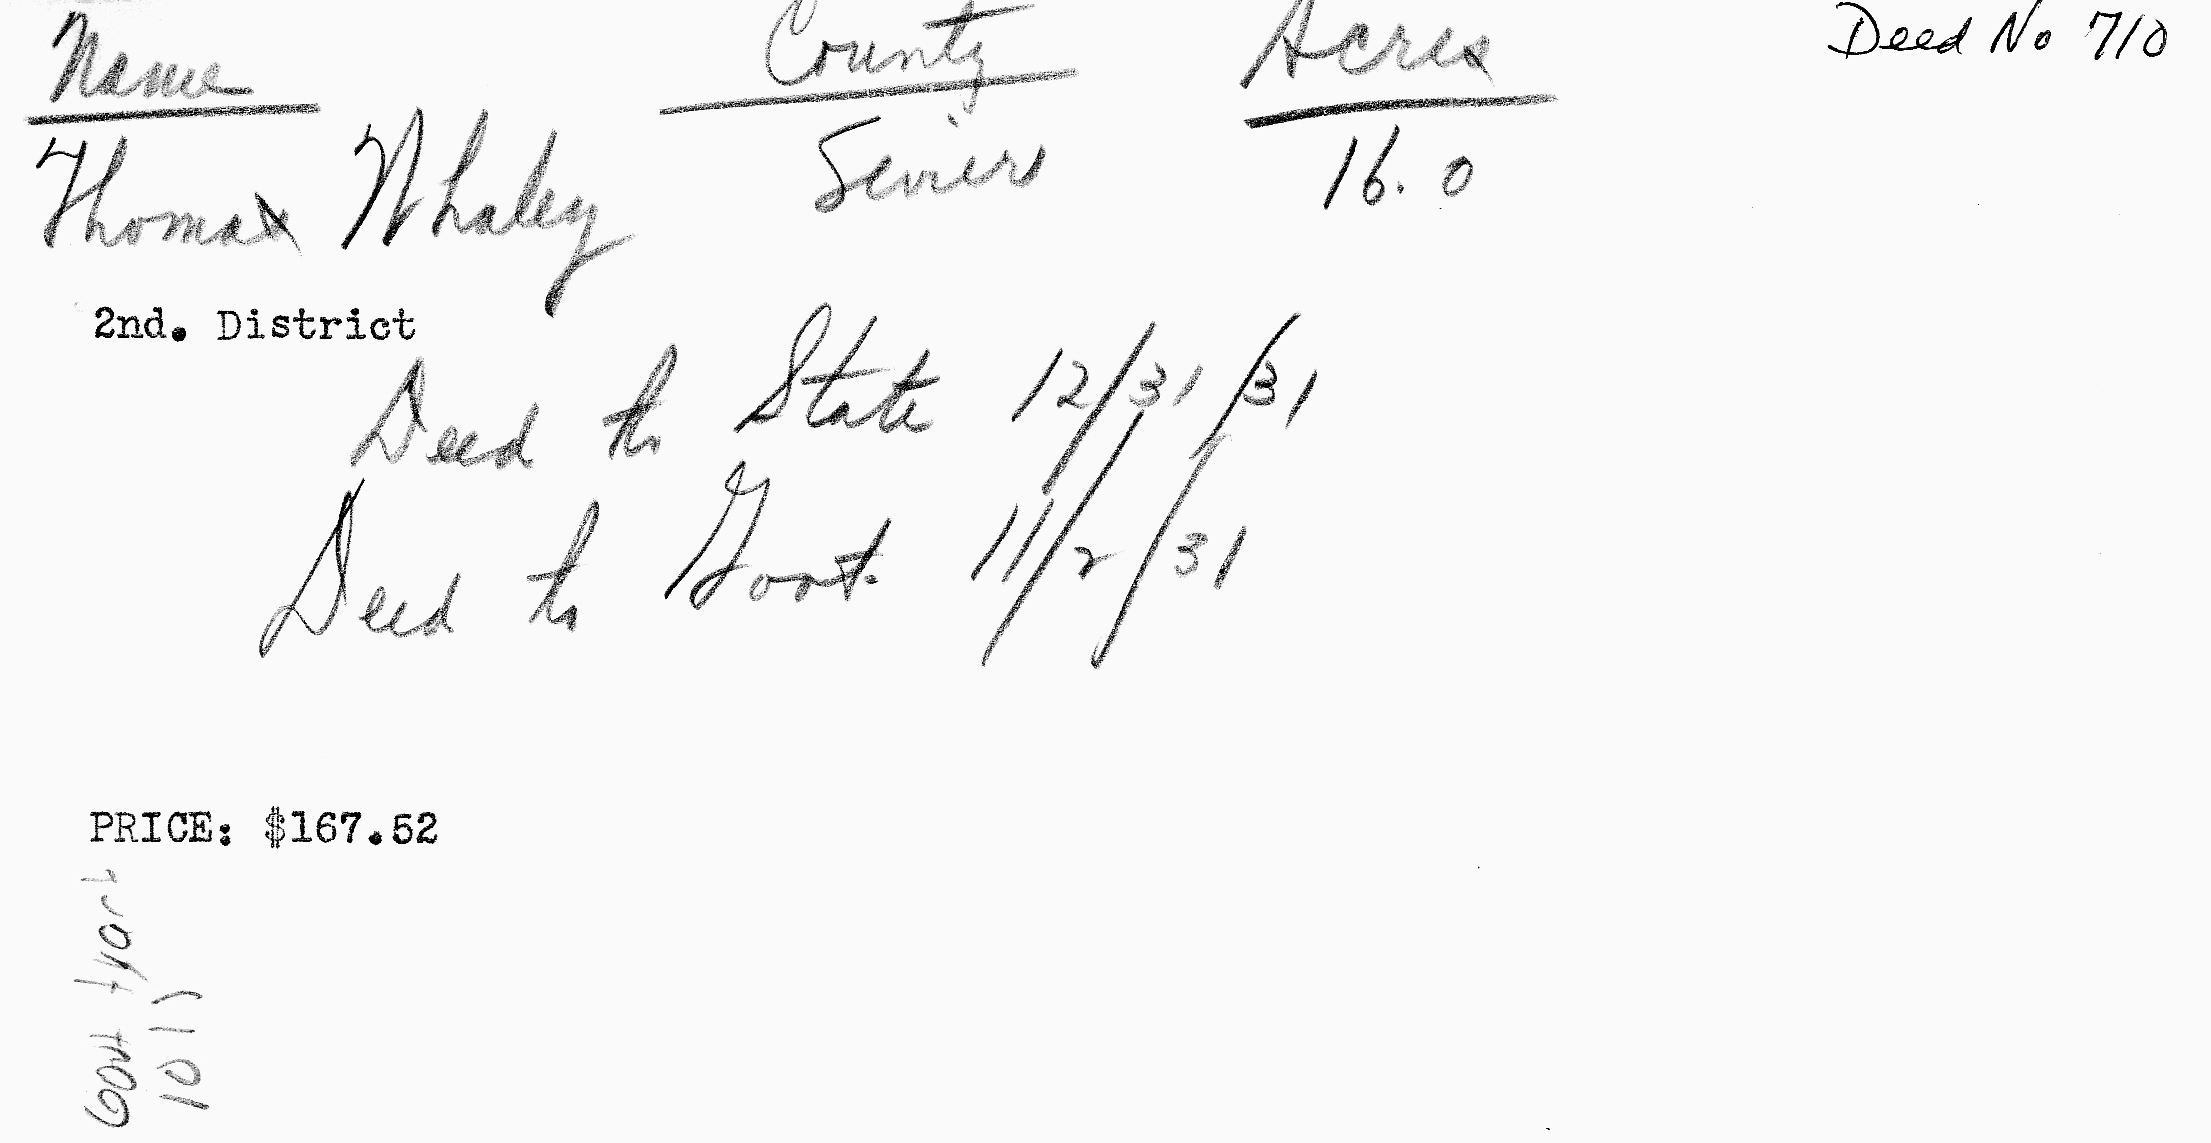 Name County Acres Deed No 710
Thomas Whaley Sevier 16.0
2nd. District
Deed to State 12/31/31
Deed to Govt. 11/2/31
PRICE: $167.52
Govt tract